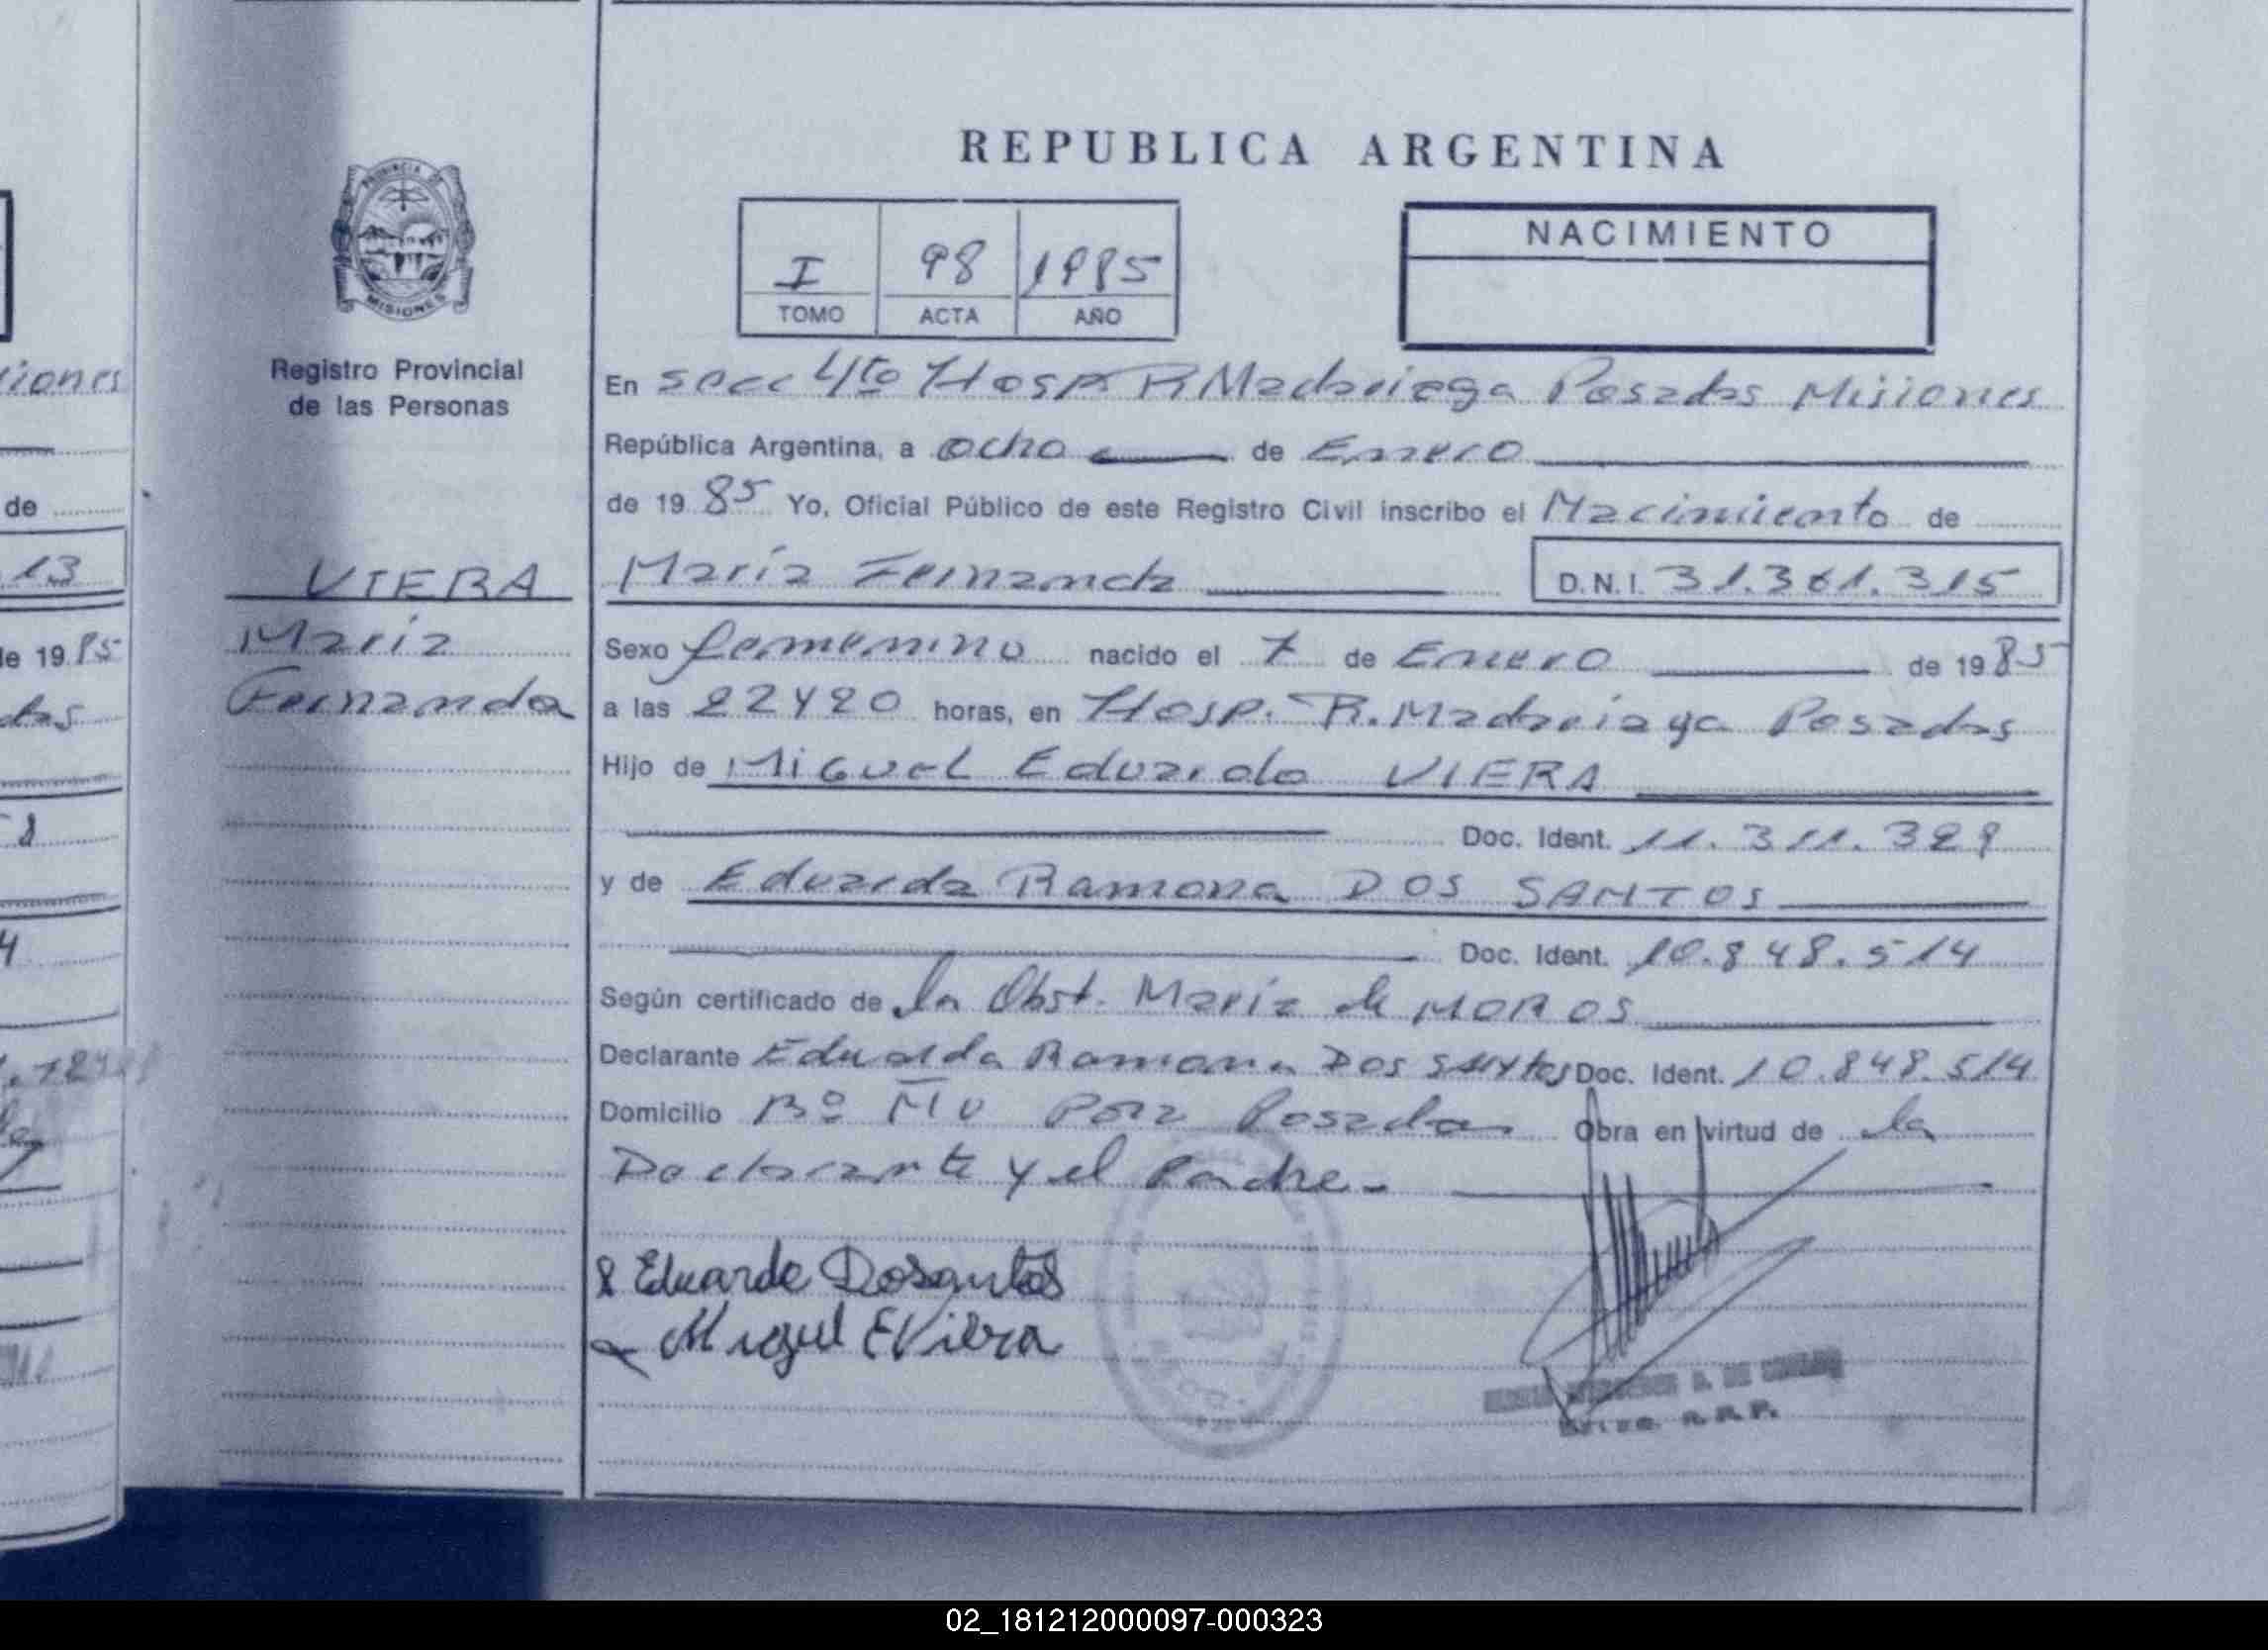 REPUBLICA ARGENTINA
PROVINCIA DE
MISIONES
I 98 1985
TOMO ACTA AÑO
NACIMIENTO
Registro Provincial
de las Personas
En secc 4to Hosp R Madariaga Posadas Misiones
República Argentina, a ocho de Enero
de 1985 Yo, Oficial Público de este Registro Civil inscribo el Nacimiento de
VIERA María Fernanda D.N.I. 31.361.315
María
Fernanda
Sexo femenino nacido el 7 de Enero de 1985
a las 22 y 20 horas, en Hosp. R. Madariaga Posadas
Hijo de Miguel Eduardo VIERA
Doc. Ident. 11.311.329
y de Eduarda Ramona DOS SANTOS
Doc. Ident. 10.848.514
Según certificado de la Obst. María de MOROS
Declarante Eduarda Ramona Dos Santos Doc. Ident. 10.848.514
Domicilio Bº Posadas Obra en virtud de la
Declarante y el Padre.-
Eduarda Dosantos
Miguel E Viera
R.R.P.
iones
de
13
de 1985
das
8
4
02_181212000097-000323